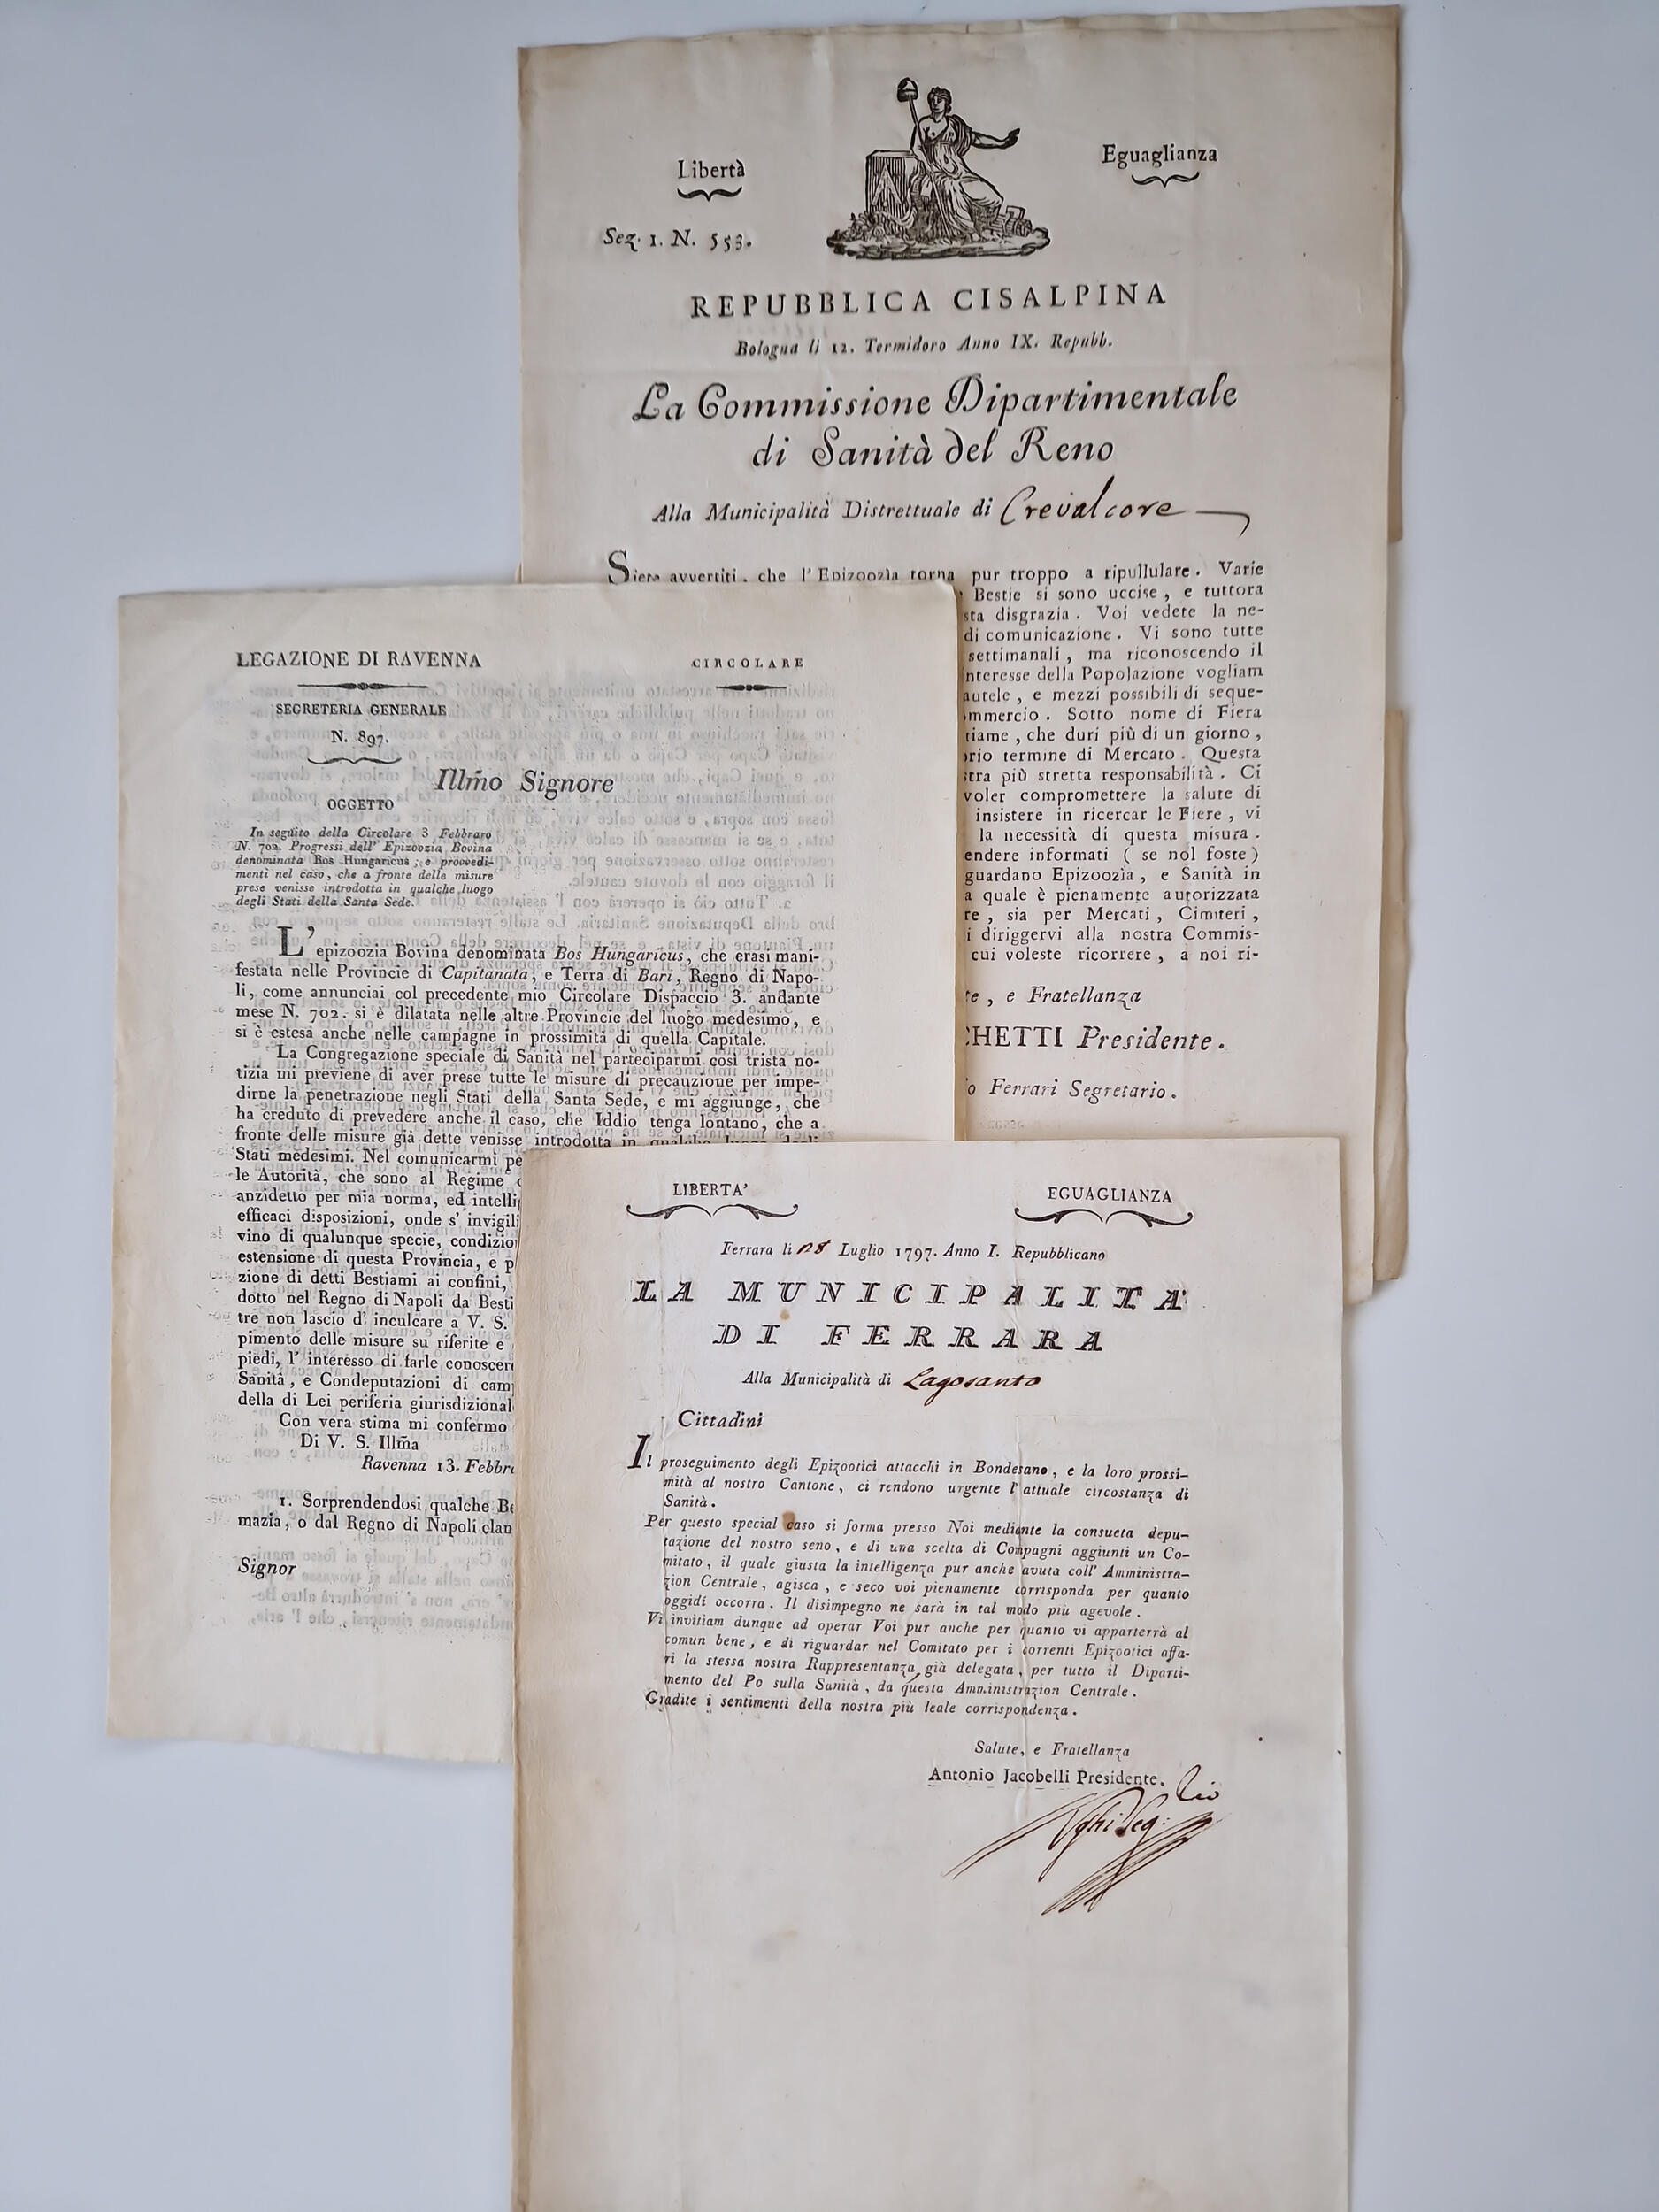 Libertà
Eguaglianza
Sez. 1. N. 553.
REPUBBLICA CISALPINA
Bologna li 12. Termidoro Anno IX. Repubb.
La Commissione Dipartimentale
di Sanità del Reno
Alla Municipalità Distrettuale di Crevalcore
Siete avvertiti, che l'Epizoozìa torna pur troppo a ripullulare. Varie
Bestie si sono uccise, e tuttora
sta disgrazia. Voi vedete la ne-
di comunicazione. Vi sono tutte
settimanali, ma riconoscendo il
nteresse della Popolazione vogliam
autele, e mezzi possibili di seque-
mmercio. Sotto nome di Fiera
tiame, che duri più di un giorno,
rio termine di Mercato. Questa
stra più stretta responsabilità. Ci
voler compromettere la salute di
insistere in ricercar le Fiere, vi
la necessità di questa misura.
endere informati ( se nol foste )
guardano Epizoozìa, e Sanità in
a quale è pienamente autorizzata
re, sia per Mercati, Cimiteri,
i diriggervi alla nostra Commis-
cui voleste ricorrere, a noi ri-
te, e Fratellanza
CHETTI Presidente.
o Ferrari Segretario.
LEGAZIONE DI RAVENNA
CIRCOLARE
SEGRETERIA GENERALE
N. 897.
Illm̃o Signore
OGGETTO
In seguito della Circolare 3 Febbraro
N. 702. Progressi dell' Epizoozia Bovina
denominata Bos Hungaricus; e provvedi-
menti nel caso, che a fronte delle misure
prese venisse introdotta in qualche luogo
degli Stati della Santa Sede.
L' epizoozia Bovina denominata Bos Hungaricus, che erasi mani-
festata nelle Provincie di Capitanata, e Terra di Bari, Regno di Napo-
li, come annunciai col precedente mio Circolare Dispaccio 3. andante
mese N. 702. si è dilatata nelle altre Provincie del luogo medesimo, e
si è estesa anche nelle campagne in prossimità di quella Capitale.
La Congregazione speciale di Sanità nel parteciparmi così trista no-
tizia mi previene di aver prese tutte le misure di precauzione per impe-
dirne la penetrazione negli Stati della Santa Sede, e mi aggiunge, che
ha creduto di prevedere anche il caso, che Iddio tenga lontano, che a
fronte delle misure già dette venisse introdotta in qualche luogo degli
Stati medesimi. Nel comunicarmi pe
le Autorità, che sono al Regime
anzidetto per mia norma, ed intelli
efficaci disposizioni, onde s' invigili
vino di qualunque specie, condizio
estensione di questa Provincia, e p
zione di detti Bestiami ai confini,
dotto nel Regno di Napoli da Besti
tre non lascio d' inculcare a V. S.
pimento delle misure su riferite e
piedi, l' interesso di farle conoscere
Sanità, e Condeputazioni di cam
della di Lei periferia giurisdizional
Con vera stima mi confermo
Di V. S. Illm̃a
Ravenna 13. Febbr
1. Sorprendendosi qualche Be
mazia, o dal Regno di Napoli clan
Signor
LIBERTA'
EGUAGLIANZA
Ferrara li 28 Luglio 1797. Anno I. Repubblicano
LA MUNICIPALITA'
DI FERRARA
Alla Municipalità di Lagosanto
Cittadini
Il proseguimento degli Epizootici attacchi in Bondesano, e la loro prossi-
mità al nostro Cantone, ci rendono urgente l'attuale circostanza di
Sanità.
Per questo special caso si forma presso Noi mediante la consueta depu-
tazione del nostro seno, e di una scelta di Compagni aggiunti un Co-
mitato, il quale giusta la intelligenza pur anche avuta coll' Amministra-
zion Centrale, agisca, e seco voi pienamente corrisponda per quanto
oggidì occorra. Il disimpegno ne sarà in tal modo più agevole.
Vi invitiam dunque ad operar Voi pur anche per quanto vi apparterrà al
comun bene, e di riguardar nel Comitato per i correnti Epizootici affa-
ri la stessa nostra Rappresentanza già delegata, per tutto il Diparti-
mento del Po sulla Sanità, da questa Amministrazion Centrale.
Gradite i sentimenti della nostra più leale corrispondenza.
Salute, e Fratellanza
Antonio Jacobelli Presidente.